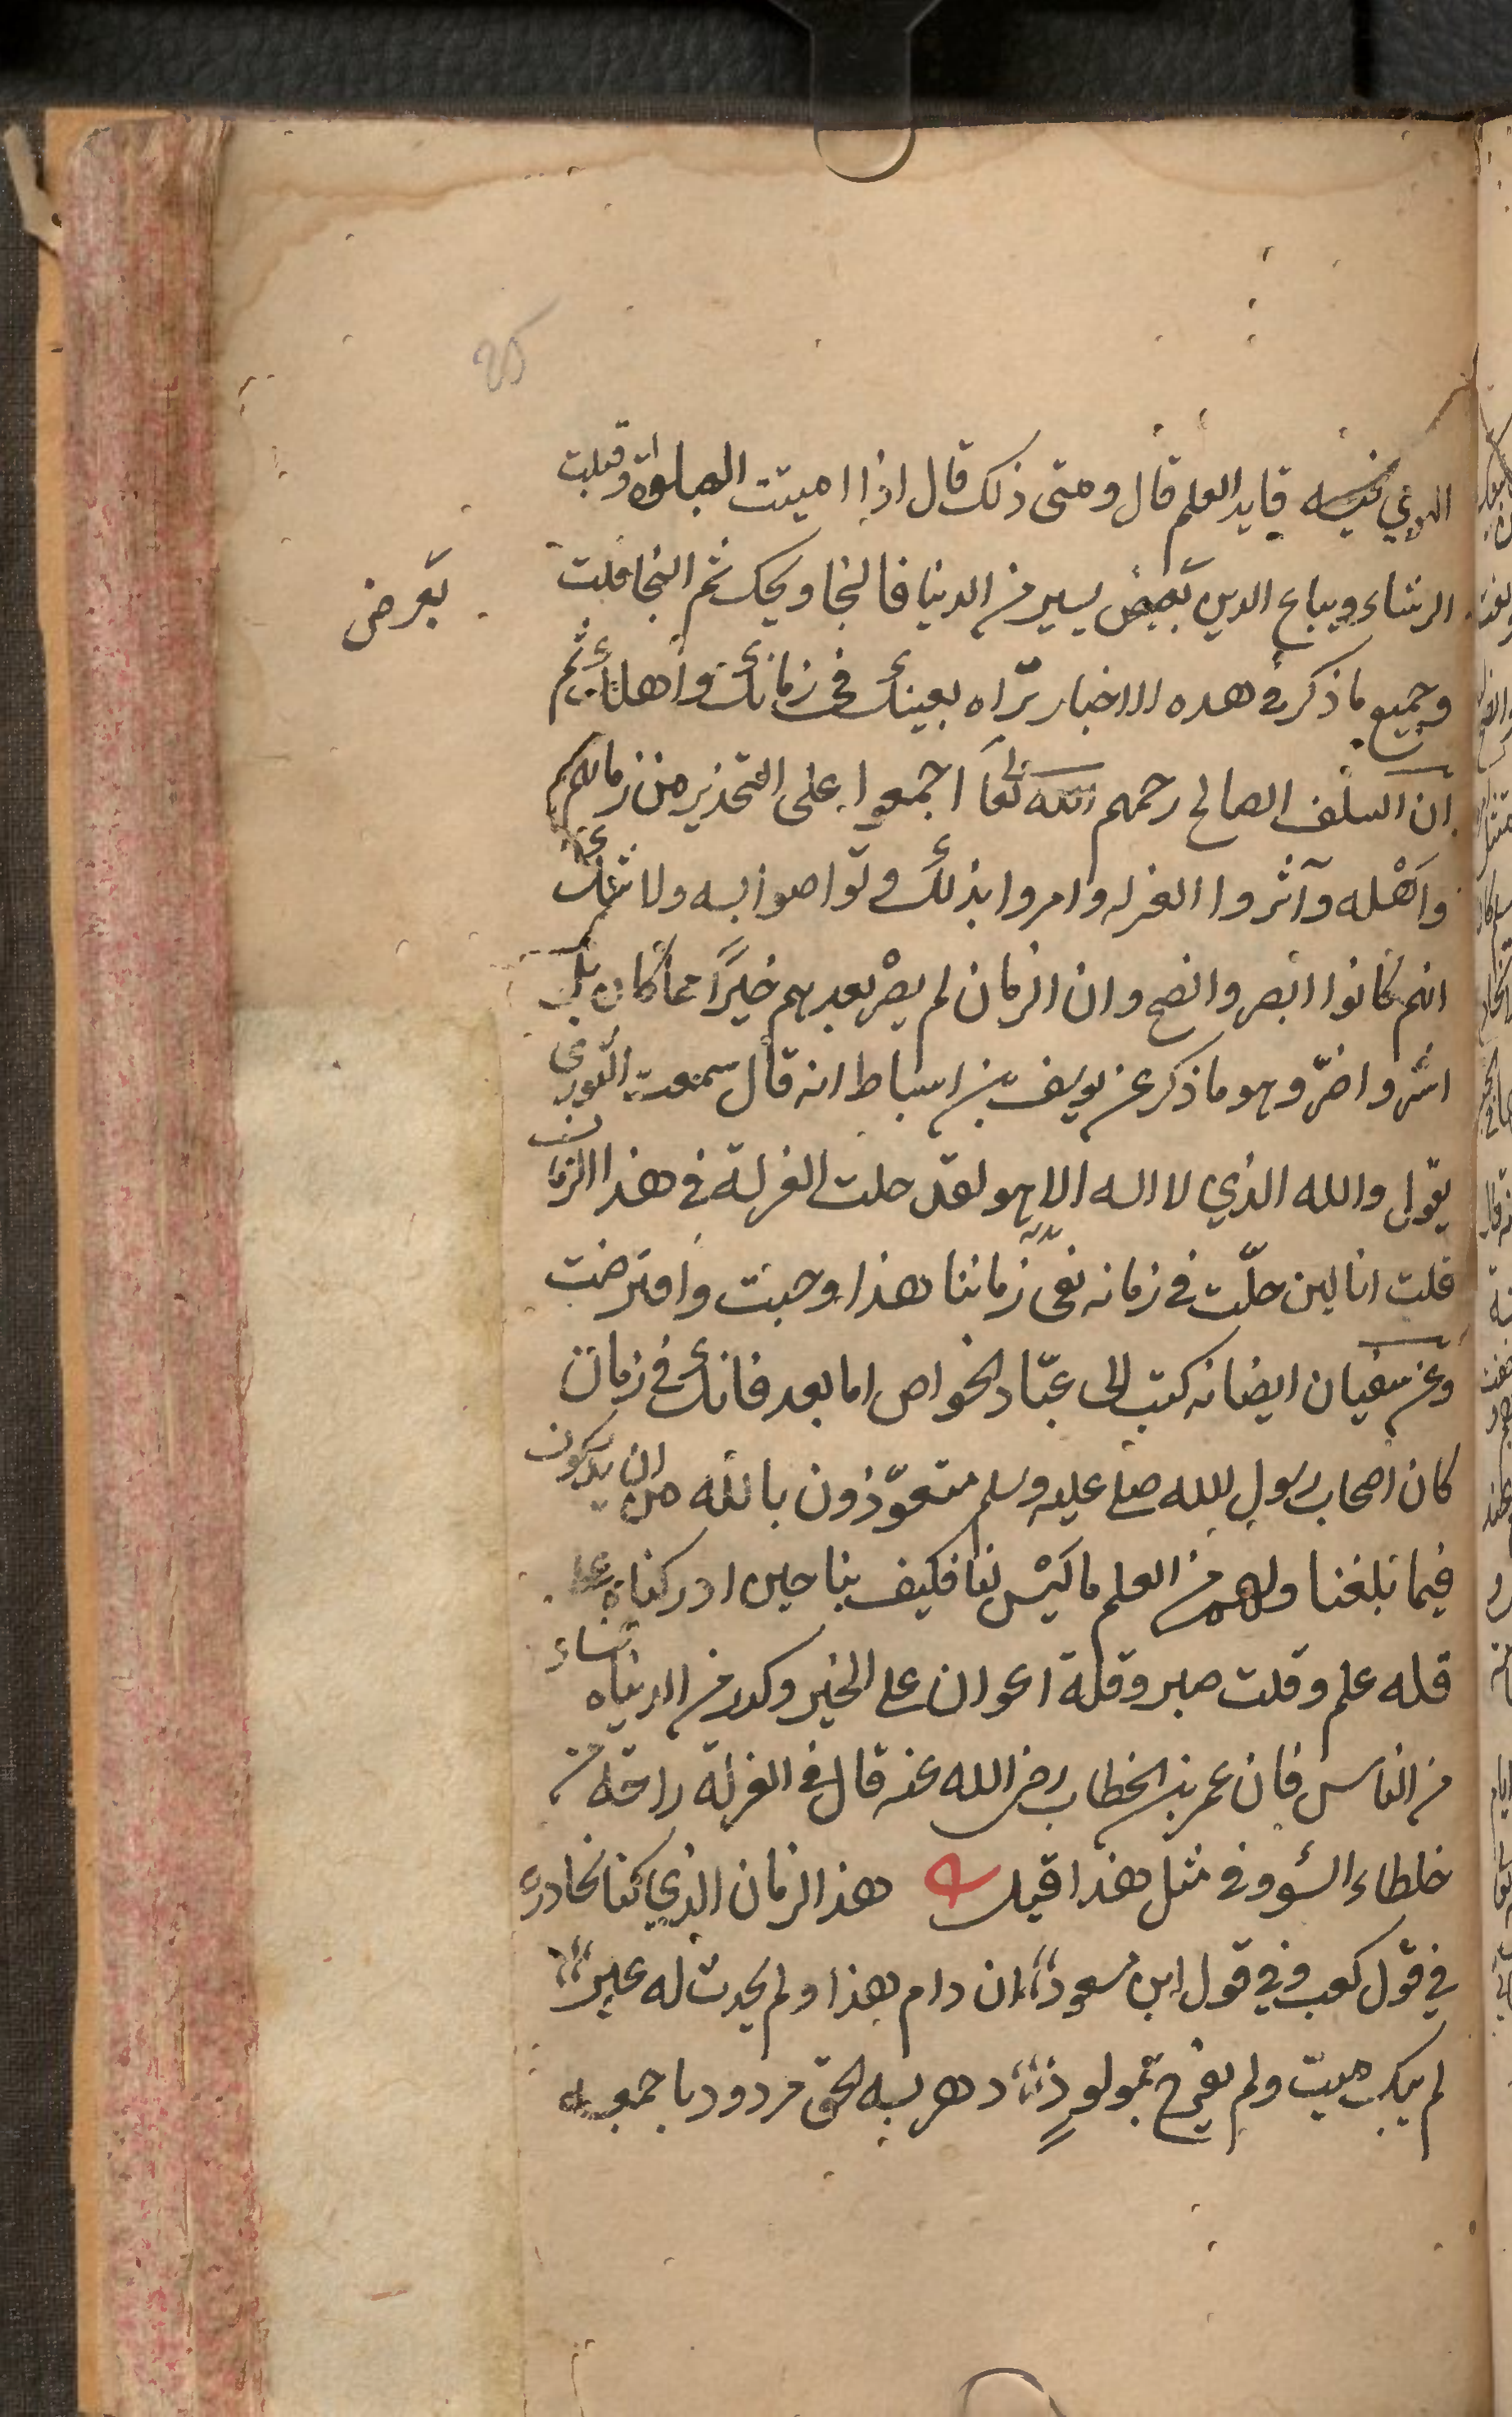 الهوي فيه قايد العلم قال ومتى ذلك قال اذا اميتت الصلوة وقبلت
الرشاء ويباع الدين بعض يسير من الدنيا فالنجا ويحك ثم النجا قلت
بعرض
وجميع ما ذكر في هده الاخبار تراه بعينك في زمانك واهلك ثم
ان السلف الصالح رحمهم الله تعا اجمعوا على التحذير من زمانهم
واهْله وآثروا العزله وامروا بذلك وتواصوا به ولا شك
انهم كانوا ابصر وانصح وان الزمان لم يصْر بعدهم خيرًا مما كان بل
اشر واضرّ وهو ما ذكر عن يوسف بن اسباط انه قال سمعت الثوري
يقول والله الذي لا اله الا هو لقد حلت العزلة في هذا الزمان
قلت انا لين حلّت في زمانه نفى زماننا هذا وجبت وافترضت
وعن سفيان ايضا انه كتب الى عبّاد الخواص اما بعد فانك في زمان
كان اصحاب رسول الله صلى عليه وسلم متعوّذون بالله من ان يدركون
فيما بلغنا ولهم من العلم ما ليْس لنا فكيف بنا حين ادركناه على
قله علم وقلت صبر وقلة اعوان على الخير وكدر من الدنيا وفساد
من الناس فان عمر بن الخطاب رضي الله عنه قال في العزلة راحة من
خلطاء السؤ وفي مثل هذا قيل هذا الزمان الذي كنا نحاذره
في قول كعب وفي قول ابن مسعود ان دام هذا ولم يحدث له غير
لم يبك ميت ولم يفرح بمولودٍ دهر به الحق مردود باجمعه